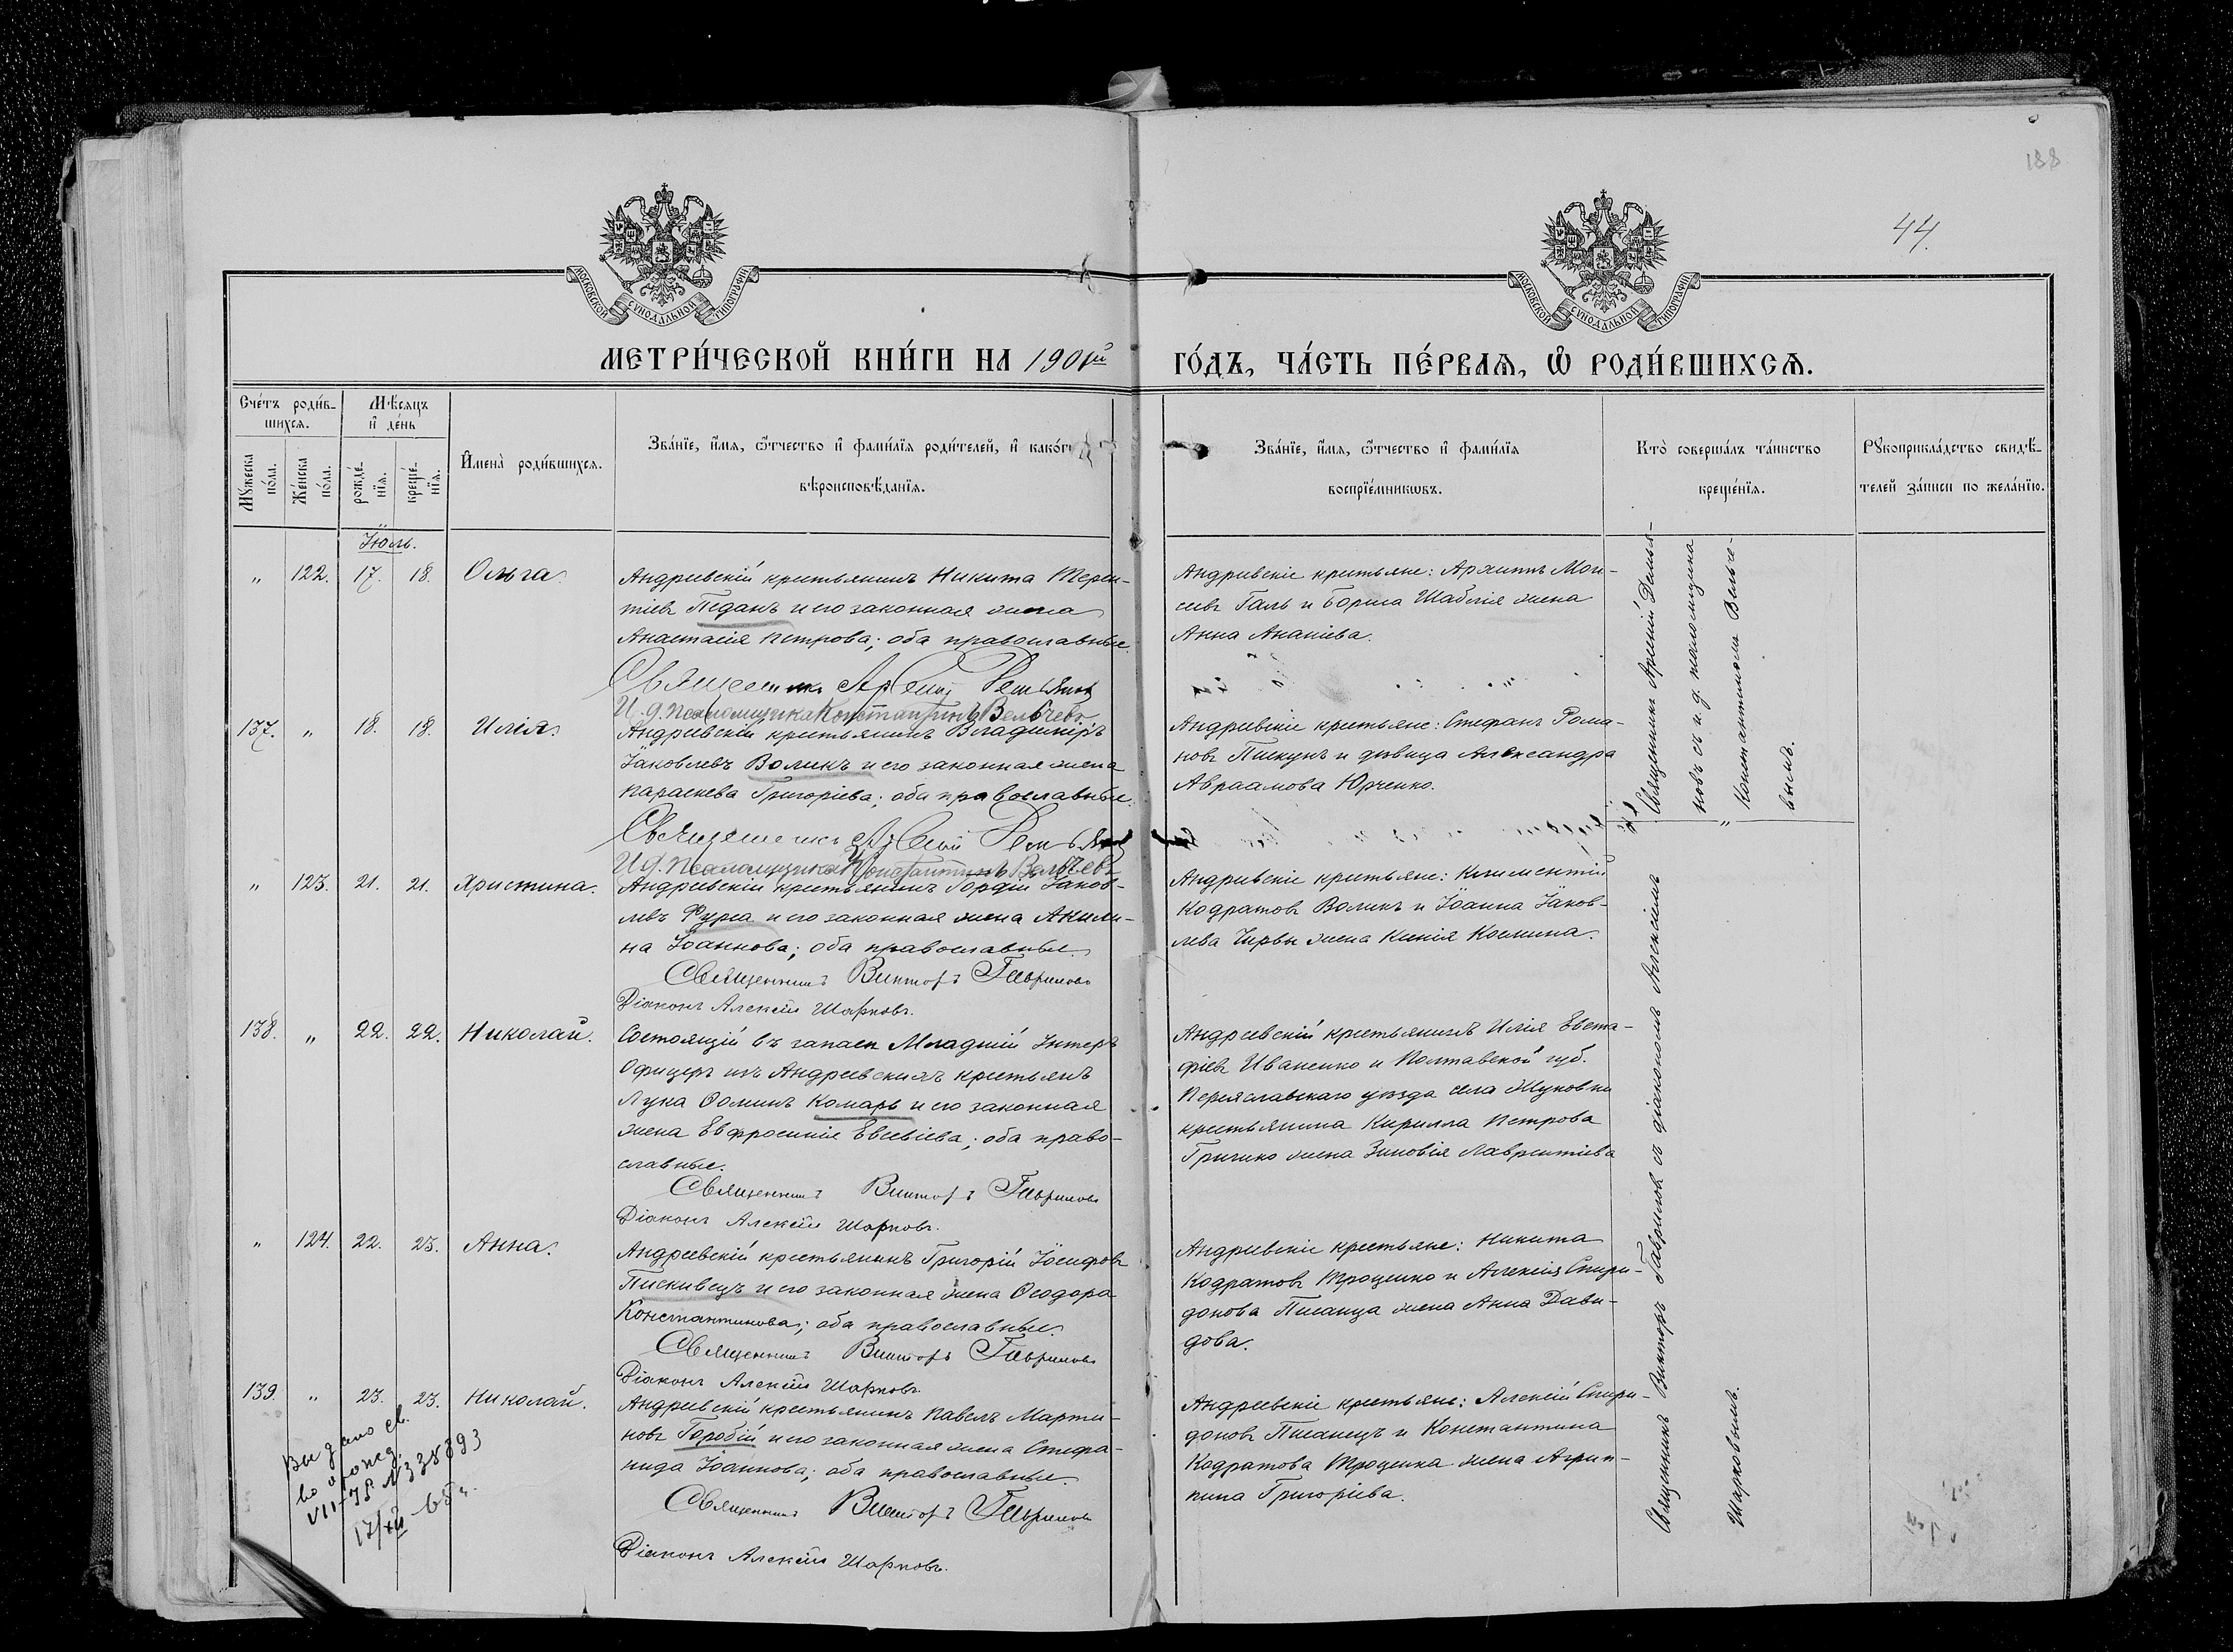 188
44.
МОСКОВСКОЙ СѴНОДАЛЬНОЙ ТИПОГРАФІИ
МОСКОВСКОЙ СѴНОДАЛЬНОЙ ТИПОГРАФІИ
МЕТРИ́ЧЕСКОЙ КНИ́ГИ НА 1901й ГО́ДЪ, ЧА́СТЬ ПЕ́РВАѦ, Ѽ РОДИ́ВШИХСѦ.
Сче́тъ роди́в-
шихсѧ.
Мꙋ́жеска
по́ла.
Же́нска
по́ла.
Мѣ́сѧцъ
и҆ де́нь
рожде́-
нїѧ.
креще́-
нїѧ.
И҆мена̀ роди́вшихсѧ.
Зва́нїе, и҆́мѧ, ѻ҆́тчество и҆ фами́лїѧ роди́телей, и҆ како́гѡ
вѣроисповѣ́данїѧ.
Зва́нїе, и҆́мѧ, ѻ҆́тчество и҆ фами́лїѧ
воспрїе́мникѡвъ.
Кто̀ соверша́лъ та́инство
креще́нїѧ.
Рꙋкоприкла́дство свидѣ́-
телей за́писи по жела́нїю.
Іюль.
" 122. 17. 18. Ольга.
Андреевскій крестьянинъ Никита Терен-
тіевъ Педанъ и его законная жена
Анастасія Петрова; оба православные.
Священникъ Арсеній Демьяновъ
И. д. псаломщика Константинъ Вельчевъ
Андреевскіе крестьяне: Архиппъ Мои-
сеевъ Галь и Бориса Шаблія жена
Анна Ананіева.
137. " 18. 18. Илія.
Андреевскій крестьянинъ Владиміръ
Іаковлевъ Воликъ и его законная жена
Параскева Григоріева; оба православные.
Священникъ Арсеній Демьяновъ
И. д. псаломщика Константинъ Вельчевъ
Андреевскіе крестьяне: Стефанъ Рома-
новъ Пискунъ и дѣвица Александра
Авраамова Юрченко.
Священникъ Арсеній Демья-
новъ съ и. д. псаломщика
Константиномъ Вельче-
вымъ.
" 123. 21. 21. Христина.
Андреевскій крестьянинъ Гордій Іаков-
левъ Фурса и его законная жена Акили-
на Іоаннова; оба православные.
Священникъ Викторъ Гавриловъ
Діаконъ Алексій Шарковъ.
Андреевскіе крестьяне: Климентій
Кодратовъ Воликъ и Іоанна Іаков-
лева Чирвы жена Ксенія Космина.
138. " 22. 22. Николай.
Состоящій въ запасѣ Младшій Унтеръ
Офицеръ изъ Андреевскихъ крестьянъ
Лука Ѳоминъ Комаръ и его законная
жена Евфросинія Евсевіева; оба право-
славные.
Священникъ Викторъ Гавриловъ
Діаконъ Алексій Шарковъ.
Андреевскій крестьянинъ Илія Евста-
фіевъ Иваненко и Полтавской губ.
Переяславскаго уѣзда села Жуковки
крестьянина Кирилла Петрова
Гричико жена Зиновія Лаврентіева
" 124. 22. 23. Анна.
Андреевскій крестьянинъ Григорій Іосифовъ
Пискивецъ и его законная жена Ѳеодора
Константинова; оба православные.
Священникъ Викторъ Гавриловъ
Діаконъ Алексій Шарковъ.
Андреевскіе крестьяне: Никита
Кодратовъ Троценко и Алексія Спири-
донова Писанца жена Анна Дави-
дова.
139. " 23. 23. Николай.
Андреевскій крестьянинъ Павелъ Марти-
новъ Горобій и его законная жена Стефа-
нида Іоаннова; оба православные.
Священникъ Викторъ Гавриловъ
Діаконъ Алексій Шарковъ.
Андреевскіе крестьяне: Алексій Спири-
доновъ Писанецъ и Константина
Кодратова Троценка жена Агрип-
пина Григоріева.
Священникъ Викторъ Гавриловъ съ діакономъ Алексіемъ
Шарковымъ.
Выдано св.
во о рожд.
VII-ЯР N 338893
17/XII-65 г.